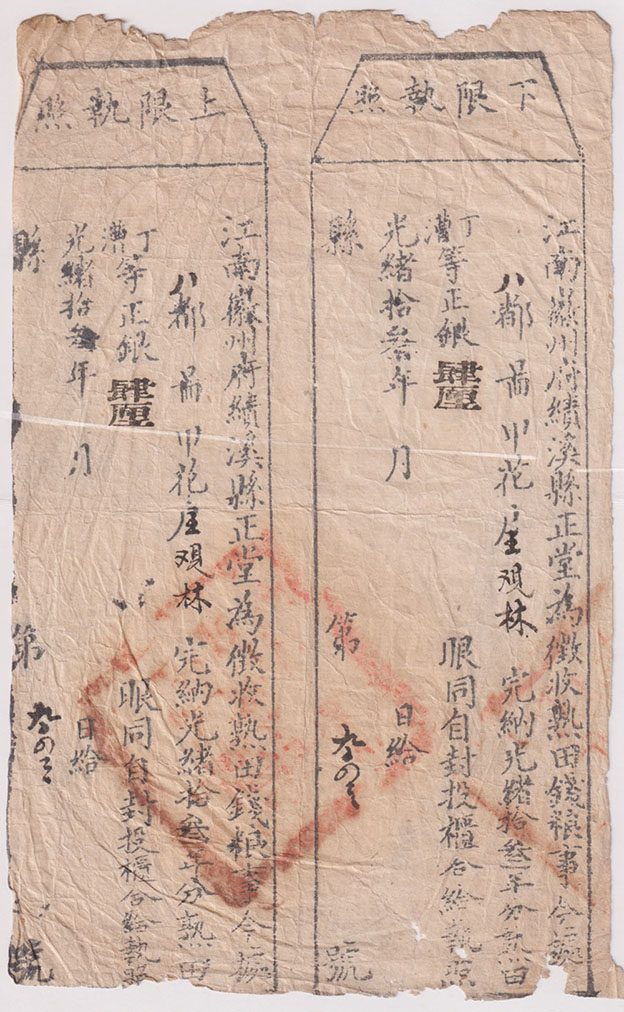 下限執照
江南徽州府績溪縣正堂為徵收熟田錢粮事今據
八都 畐 甲花戶观林 完納光緒拾叁年分熟田
丁漕等正銀肆厘 眼同自封投櫃合給執照
光緒拾叁年 月 日給
縣 第 号 號
上限執照
江南徽州府績溪縣正堂為徵收熟田錢粮事今據
八都 畐 甲花戶观林 完納光緒拾叁年分熟田
丁漕等正銀肆厘 眼同自封投櫃合給執照
光緒拾叁年 月 日給
縣 第 號